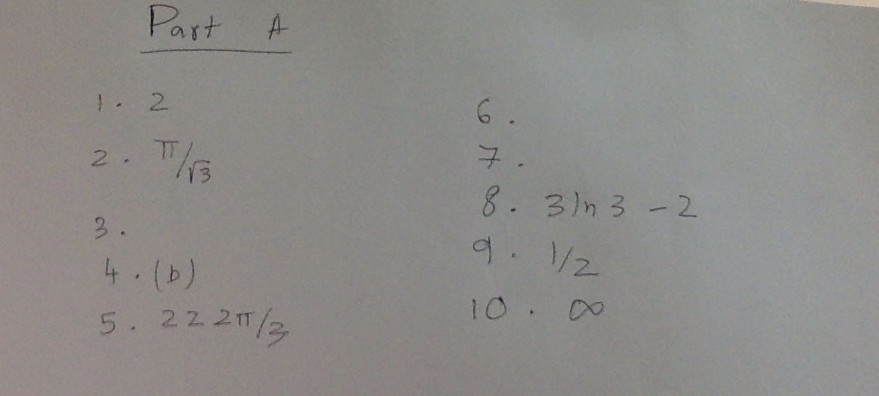 Part A
1. 2
2. π/√3
3.
4. (b)
5. 222π/3
6.
7.
8. 3ln3 - 2
9. 1/2
10. ∞